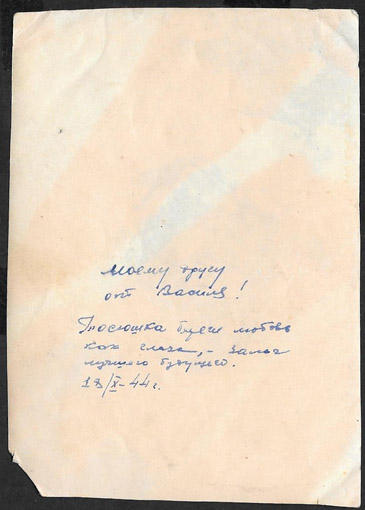 Моему другу
от Васи!
Тосюшка береги любовь
как глаза, – залог
лучшего будущего.
18/X-44 г.